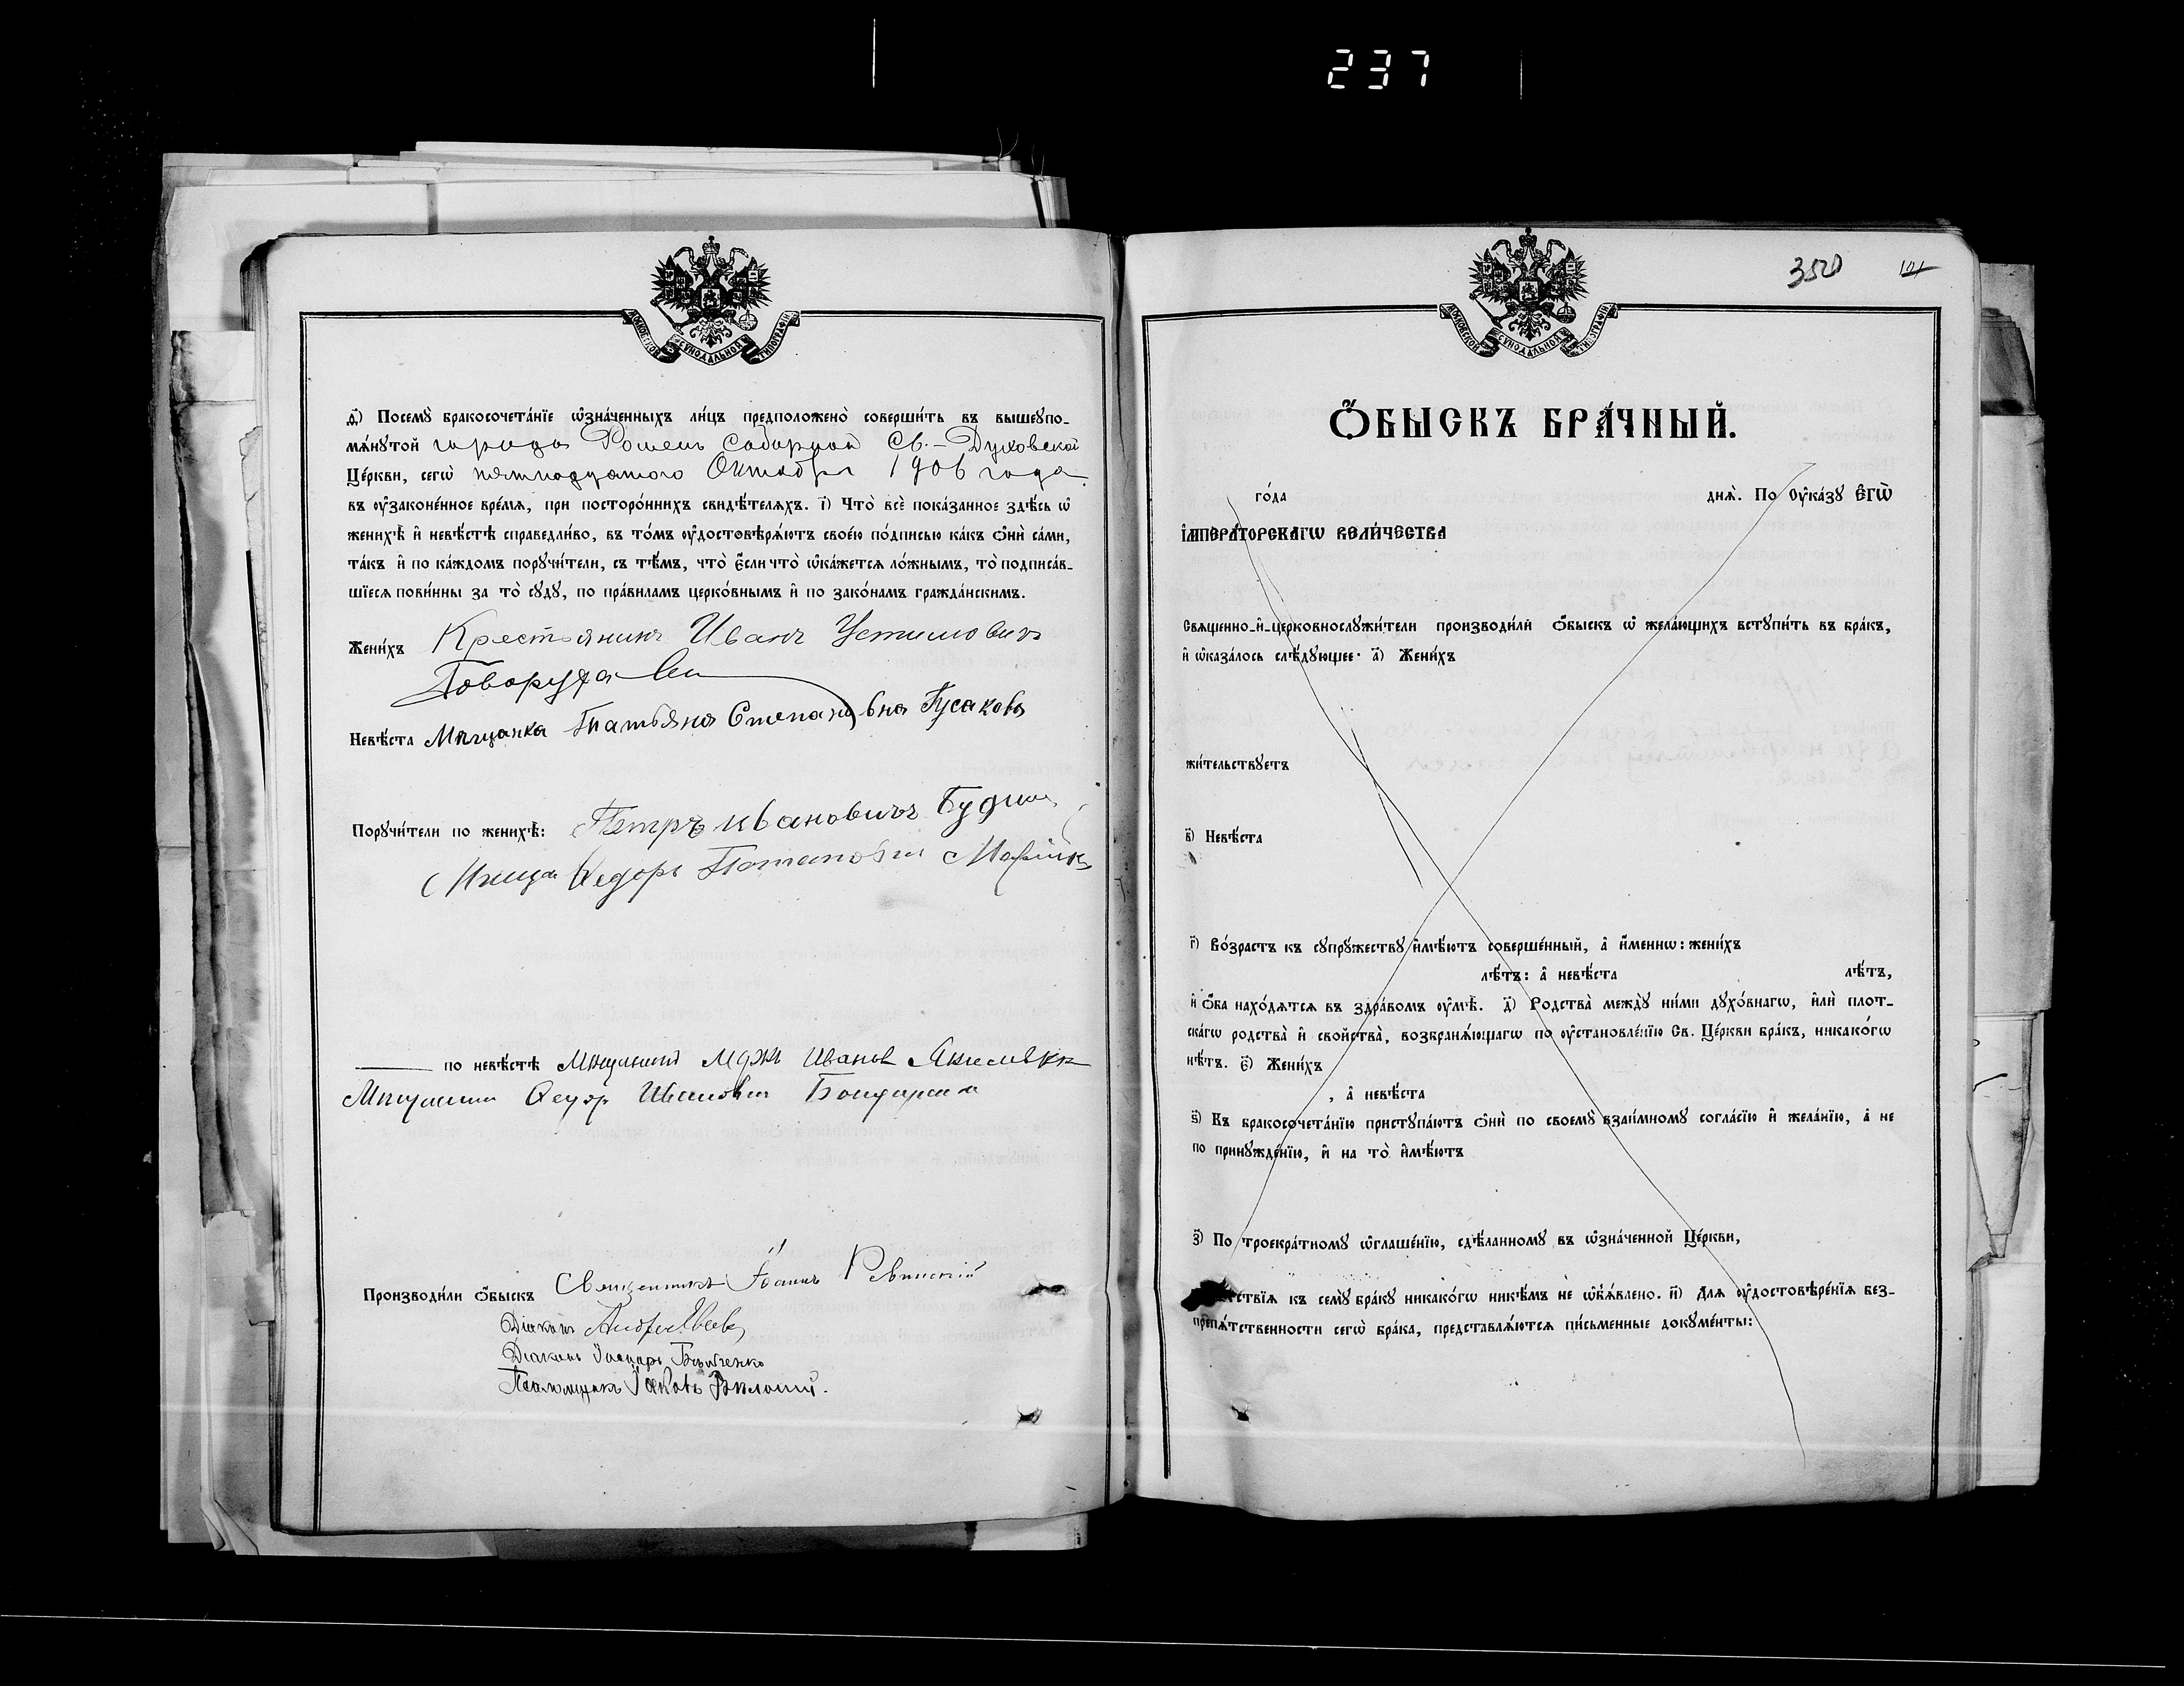 237
МОСКОВСКОЙ СѴНОДАЛЬНОЙ ТИПОГРАФІИ
д҃) Посемꙋ̀ бракосочета́нїе ѡ҆зна́ченныхъ ли́цъ предположено̀ соверши́ть въ вышеупо-
мѧ́нꙋтой города Ромень Соборной Св.-Духовской
Це́ркви, сегѡ̀ пятнадцатого Октября 1906 года
въ ᲂу҆законе́нное вре́мѧ, при посторо́ннихъ свидѣ́телѧхъ. і҃) Что̀ всѐ пока́занное здѣ́сь ѡ҆
женихѣ̀ и҆ невѣ́стѣ справедли́во, въ то́мъ ᲂу҆достовѣрѧ́ютъ свое́ю по́дписью ка́къ ѻ҆нѝ са́ми,
та́къ и҆ по ка́ждомъ порꙋчи́тели, съ тѣ́мъ, что̀ є҆́сли что̀ ѡ҆ка́жетсѧ ло́жнымъ, то̀ подписа́в-
шїесѧ пови́нны за то̀ сꙋдꙋ̀, по пра́виламъ церко́внымъ и҆ по зако́намъ гражда́нскимъ.
Жени́хъ Крестьянинъ Иванъ Устимовичъ
Говоруха
Невѣ́ста Мѣщанка Татьяна Степановна Гусакова
Порꙋчи́тели по женихѣ̀: Петръ Ивановичъ
Федоръ Потаповъ
по невѣ́стѣ Мѣщанинъ Иванъ
Мѣщанинъ Ѳедор Ивановъ
Производи́ли ѻ҆́быскъ Священникъ Іоаннъ
Діаконъ
Діаконъ
Псаломщикъ Іаковъ
350 101
МОСКОВСКОЙ СѴНОДАЛЬНОЙ ТИПОГРАФІИ
Ѻ҆́БЫСКЪ БРА́ЧНЫЙ.
го́да днѧ̀. По ᲂу҆ка́зꙋ Є҆ГѠ̀
І҆МПЕРА́ТОРСКАГѠ ВЕЛИ́ЧЕСТВА
Свѧщенно-и҆-церковнослꙋжи́тели производи́ли ѻ҆́быскъ ѡ҆ жела́ющихъ встꙋпи́ть въ бра́къ,
и҆ ѡ҆каза́лось слѣ́дꙋющее: а҃) Жени́хъ
жи́тельствꙋетъ
в҃) Невѣ́ста
г҃) Во́зрастъ къ сꙋпрꙋ́жествꙋ и҆мѣ́ютъ соверше́нный, а҆ и҆́меннѡ: жени́хъ
лѣ́тъ: а҆ невѣ́ста лѣ́тъ,
и҆ ѻ҆́ба нахо́дѧтсѧ въ здра́вомъ ᲂу҆мѣ̀. д҃) Родства̀ междꙋ̀ ни́ми дꙋхо́внагѡ, и҆лѝ плот-
ска́гѡ родства̀ и҆ сво́йства, возбранѧ́ющагѡ по ᲂу҆становле́нїю Св. Це́ркви бра́къ, никако́гѡ
нѣ́тъ. є҃) Жени́хъ
, а҆ невѣ́ста
ѕ҃) Къ бракосочета́нїю пристꙋпа́ютъ ѻ҆нѝ по своемꙋ̀ взаи́мномꙋ согла́сїю и҆ жела́нїю, а҆ не
по принꙋжде́нїю, и҆ на то̀ и҆мѣ́ютъ
з҃) По троекра́тномꙋ ѡ҆глаше́нїю, сдѣ́ланномꙋ въ ѡ҆зна́ченной Це́ркви,
тствїѧ къ семꙋ̀ бра́кꙋ никако́гѡ никѣ́мъ не ѡ҆б̾ѧ́влено. и҃) Длѧ ᲂу҆достовѣре́нїѧ без-
препѧ́тственности сегѡ̀ бра́ка, представлѧ́ютсѧ пи́сьменные докꙋме́нты: